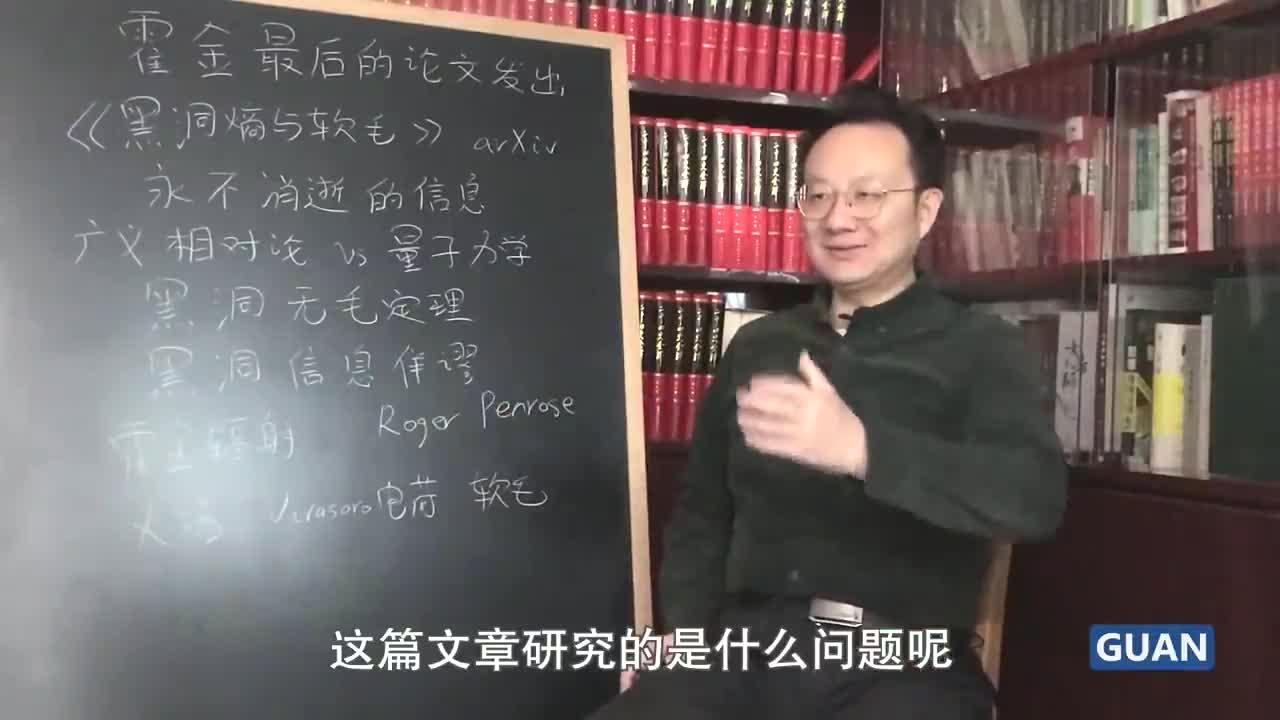 霍金最后的论文发出
《黑洞熵与软毛》 arXiv
永不消逝的信息
广义相对论 vs 量子力学
黑洞无毛定理
黑洞信息佯谬
霍金辐射 Roger Penrose
Virasoro电荷 软毛
这篇文章研究的是什么问题呢
GUAN
二十四史全译